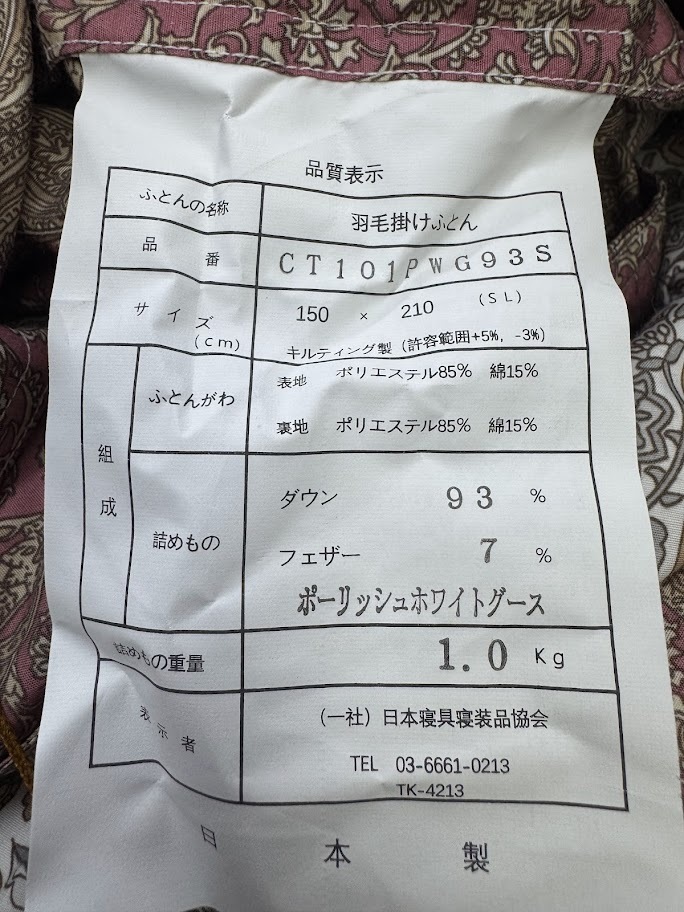 品質表示
ふとんの名称 羽毛掛けふとん
品番 CT101PWG93S
サイズ(cm) 150 × 210 (SL)
キルティング製 (許容範囲+5%, -3%)
組成
ふとんがわ 表地 ポリエステル85% 綿15%
裏地 ポリエステル85% 綿15%
詰めもの ダウン 93 %
フェザー 7 %
ポーリッシュホワイトグース
詰めもの重量 1.0 Kg
表示者 (一社) 日本寝具寝装品協会
TEL 03-6661-0213
TK-4213
日本製